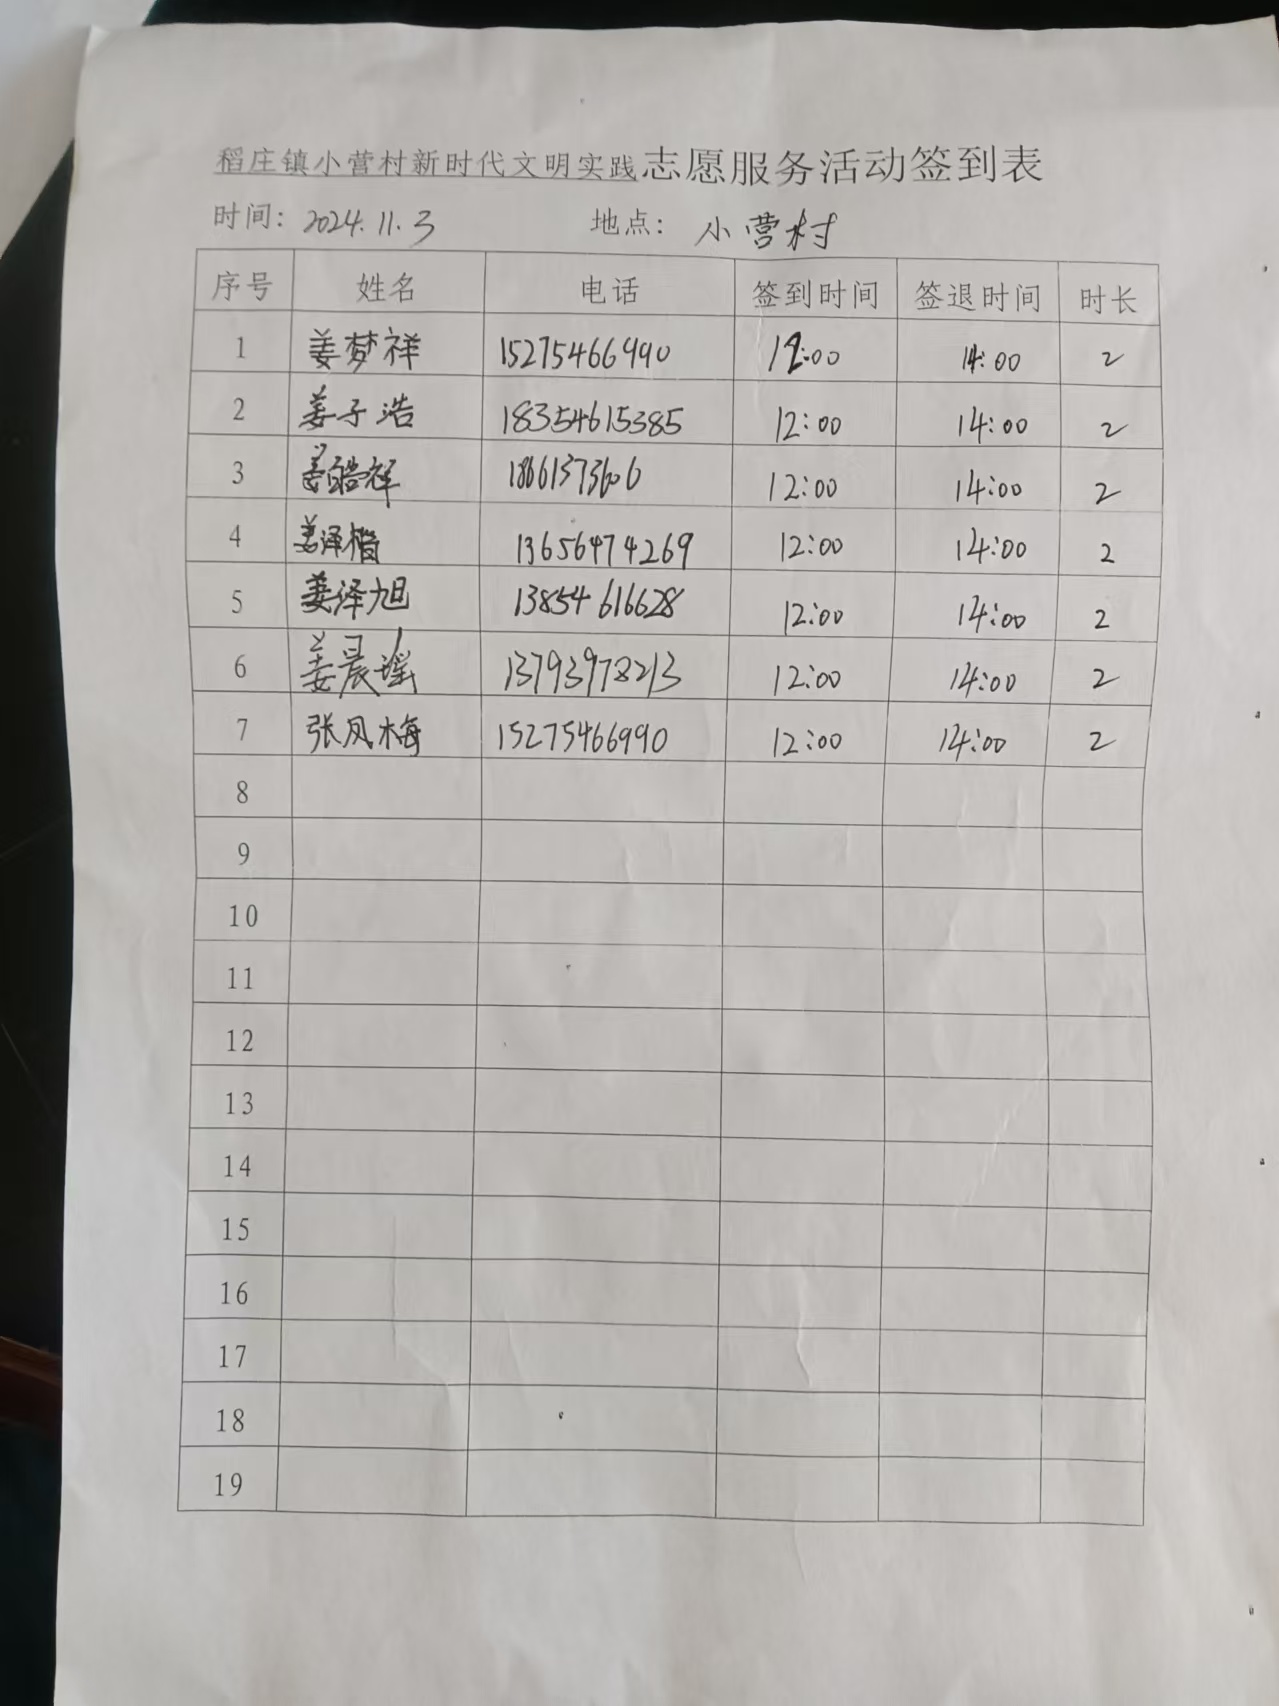 稻庄镇小营村新时代文明实践志愿服务活动签到表
时间: 2024.11.3 地点: 小营村
序号 姓名 电话 签到时间 签退时间 时长
1 姜梦祥 15275466990 12:00 14:00 2
2 姜子浩 18354615385 12:00 14:00 2
3 姜皓祥 12:00 14:00 2
4 姜泽楷 13656474269 12:00 14:00 2
5 姜泽旭 13854616628 12:00 14:00 2
6 姜晨瑶 13793978213 12:00 14:00 2
7 张凤梅 15275466990 12:00 14:00 2
8
9
10
11
12
13
14
15
16
17
18
19